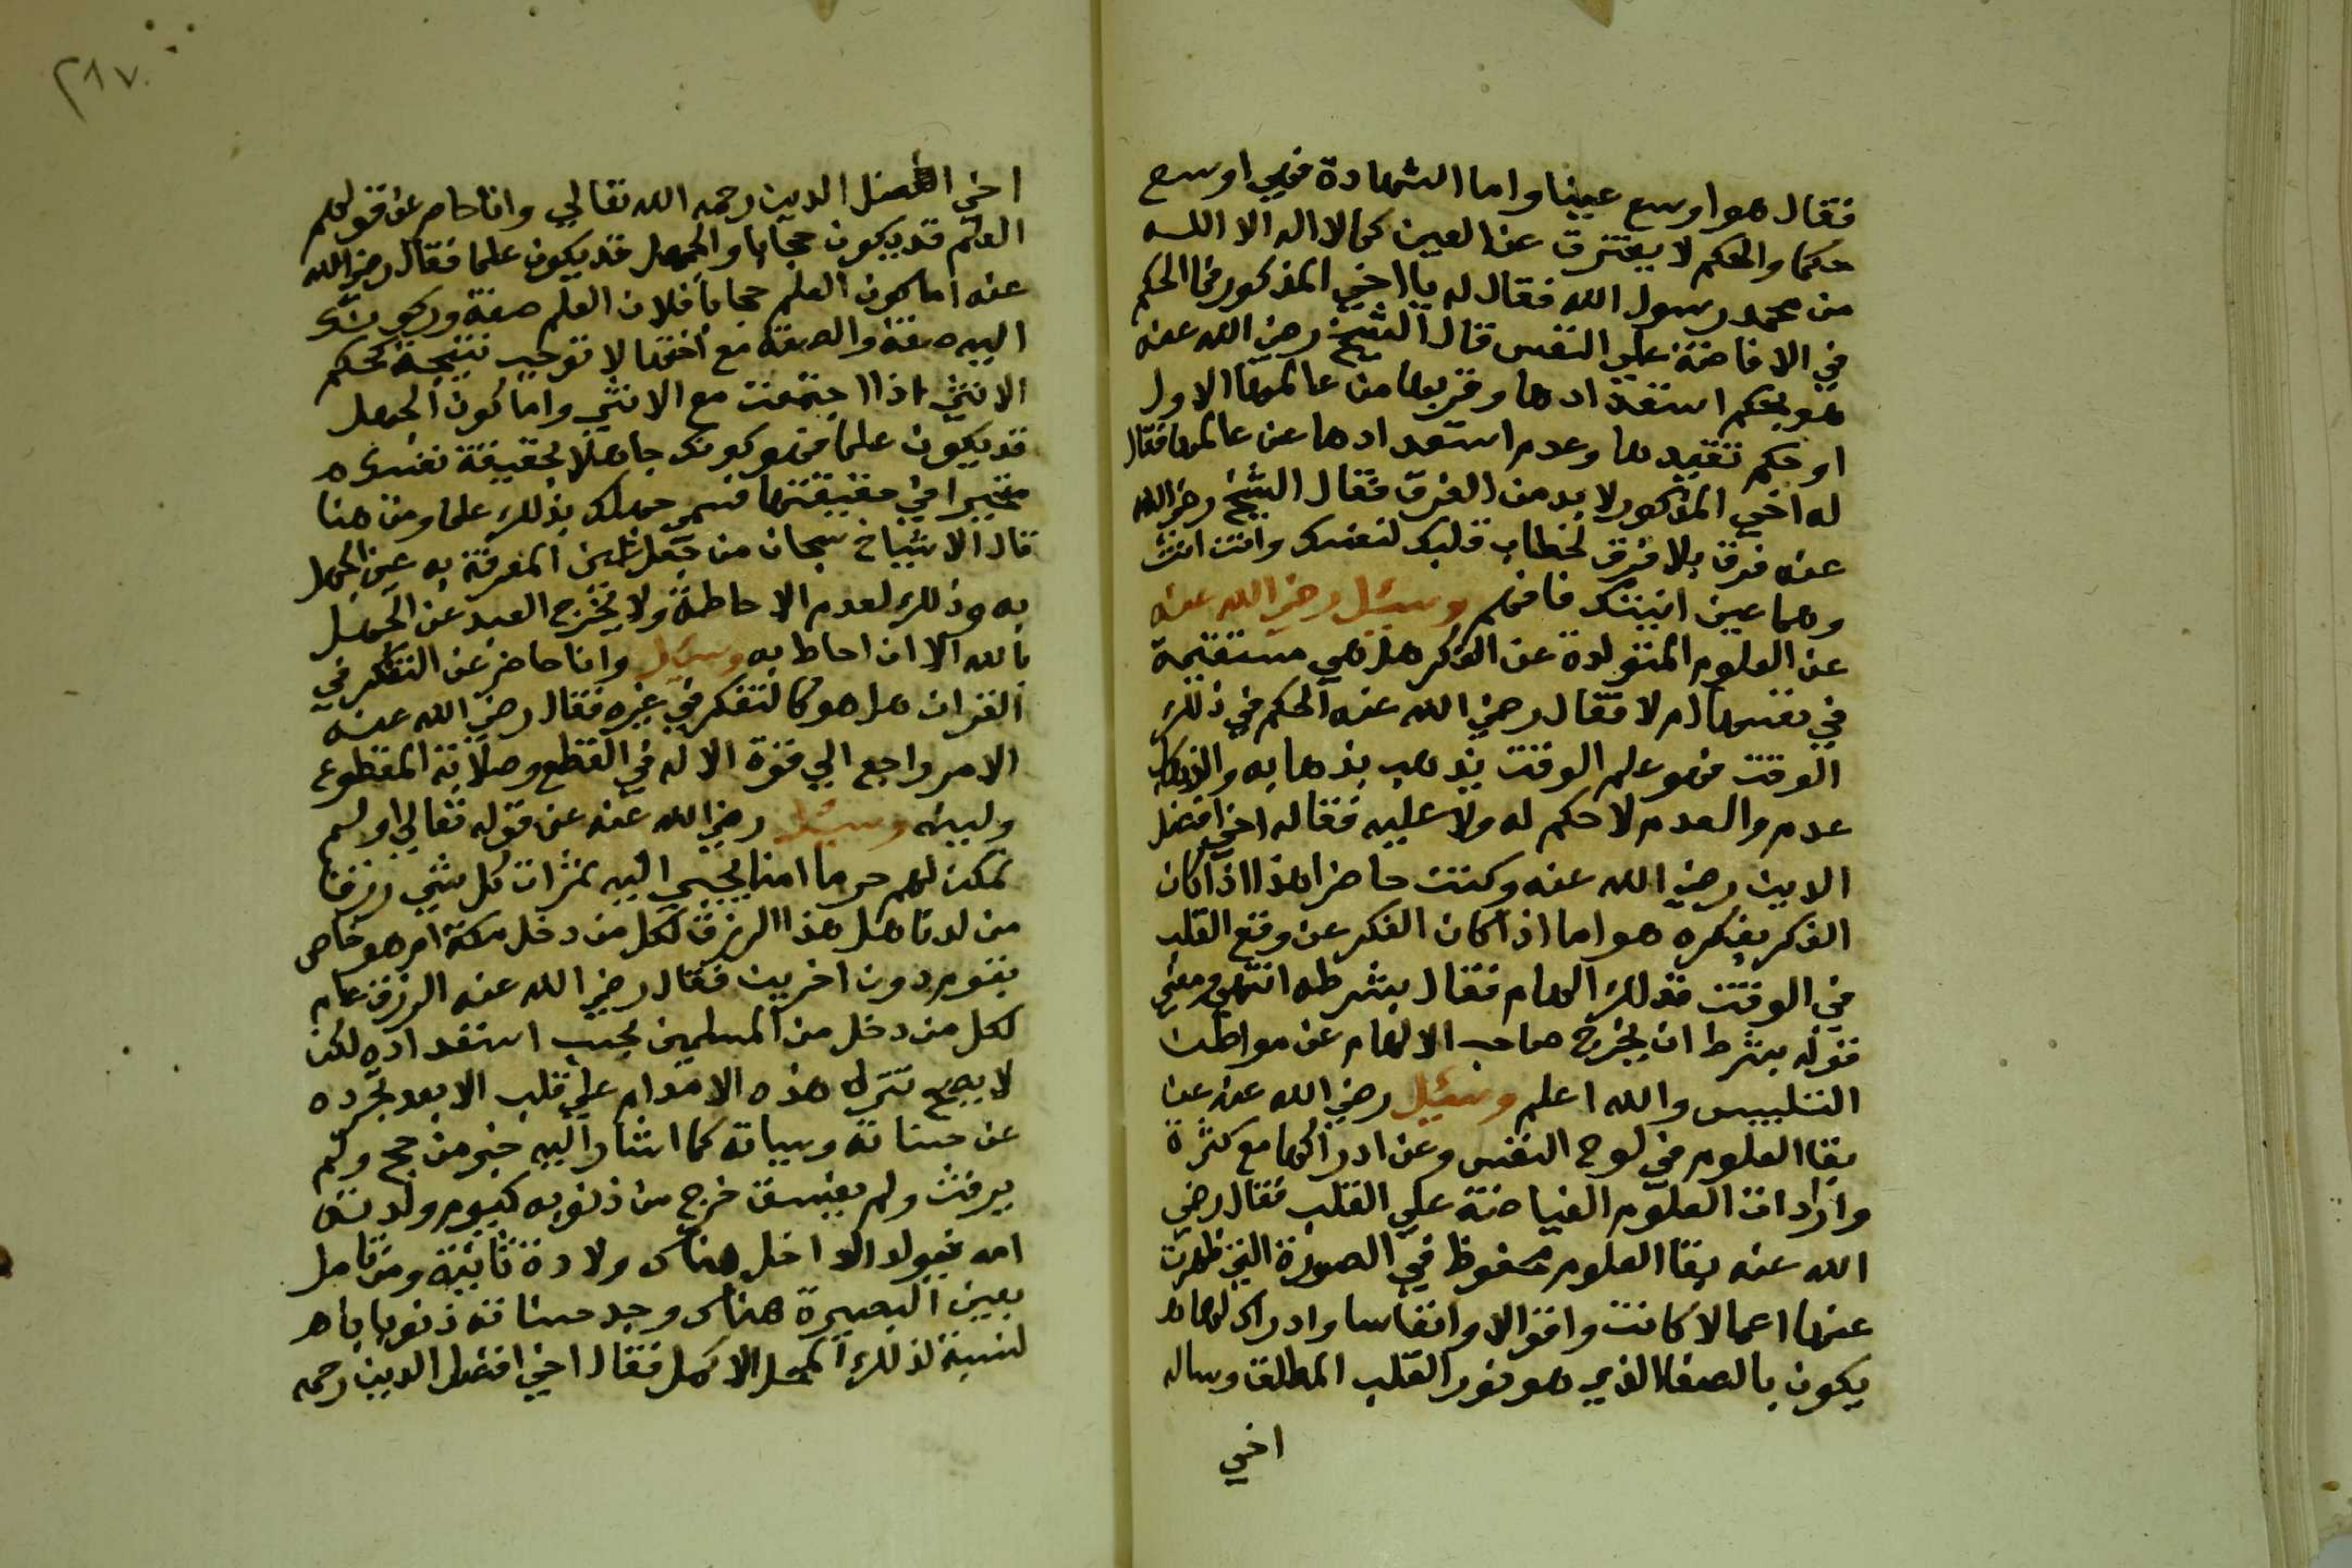 فقال هو اوسع عينا واما الشهادة فهي اوسع
حكما والحكم لا يفترق عن العين كما لا اله الا الله
من محمد رسول الله فقال له يا اخي المذكور فما الحكم
في الافاضة علي النفس قال الشيخ رضي الله عنه
هو بحكم استعدادها وقربها من عالمها الاول
او بحكم تقيدها وعدم استعدادها عن عالمها فقال
له اخي المذكور لا بد من الفرق فقال الشيخ رضي الله
عنه فرق بلا فرق لخطاب قلبك لنفسك وانت انت
وهما عين انيتك فافهم وسئل رضي الله عنه
عن العلوم المتولدة عن الفكر هل هي مستقيمة
في نفسها ام لا فقال رضي الله عنه الحكم في ذلك
الوقت فهو علم الوقت يذهب بذهابه والذهاب
عدم والعدم لا حكم له ولا عليه فقال اخي افضل
الدين رضي الله عنه وكنت حاضرا هذا اذا كان
الفكر بفكره هو اما اذا كان الفكر عن وقع القلب
في الوقت فذلك الهام فقال بشرطه انتهي ومعني
قوله بشرط ان يخرج صاحب الالهام عن مواطن
التلبيس والله اعلم وسئيل رضي الله عنه عن
بقا العلوم في لوح النفس وعن ادراكها مع كثرة
وارادات العلوم الفياضة علي القلب فقال رضي
الله عنه بقا العلوم محفوظ في الصورة التي ظهرت
عنها اعمالا كانت واقوالا وانفاسا وادراكها
يكون بالصفا الذي هو نور القلب المطلق وساله
اخي
٢١٧
اخي افضل الدين رحمه الله تعالي وانا حاضر عن قولهم
العلم قد يكون حجابا والجهل قد يكون علما فقال رضي الله
عنه اما كون العلم حجابا فلان العلم صفة
اليه صفة والصفة مع اختها لا توجب نتيجة كحكم
الانثي اذا اجتمعت مع الانثي واما كون الجهل
قد يكون علما فهو كونك جاهلا بحقيقة نفسك
متحيرا في حقيقتها فسمي جهلك بذلك علما ومن هنا
قال الاشياخ سبحان من جعل عين المعرفة به عين الجهل
به وذلك لعدم الاحاطة ولا يخرج العبد عن الجهل
بالله الا ان احاط به وسئل وانا حاضر عن التفكر في
القران هل هو كالتفكر في غيره فقال رضي الله عنه
الامر راجع الي قوة الاله في القطع وصلابة المقطوع
ولينه وسئل رضي الله عنه عن قوله تعالي اولم
نمكن لهم حرما امنا يجبي اليه ثمرات كل شي رزقا
من لدنا هل هذا الرزق لكل من دخل مكة ام هو خاص
بقوم دون اخرين فقال رضي الله عنه الرزق عام
لكل من دخل من المسلمين بحسب استعداده لكن
لا يصح تنزل هذه الامداد علي قلب الا بعد تجرده
عن حسناته وسياته كما اشار اليه خبر من حج ولم
يرفث ولم يفسق خرج من ذنوبه كيوم ولدته
امه فيولد الداخل هناك ولادة ثانية ومن تامل
بعين البصيرة هناك وجد حسناته ذنوبا
لنسبة لذلك المحل الاكمل فقال اخي افضل الدين رحمه